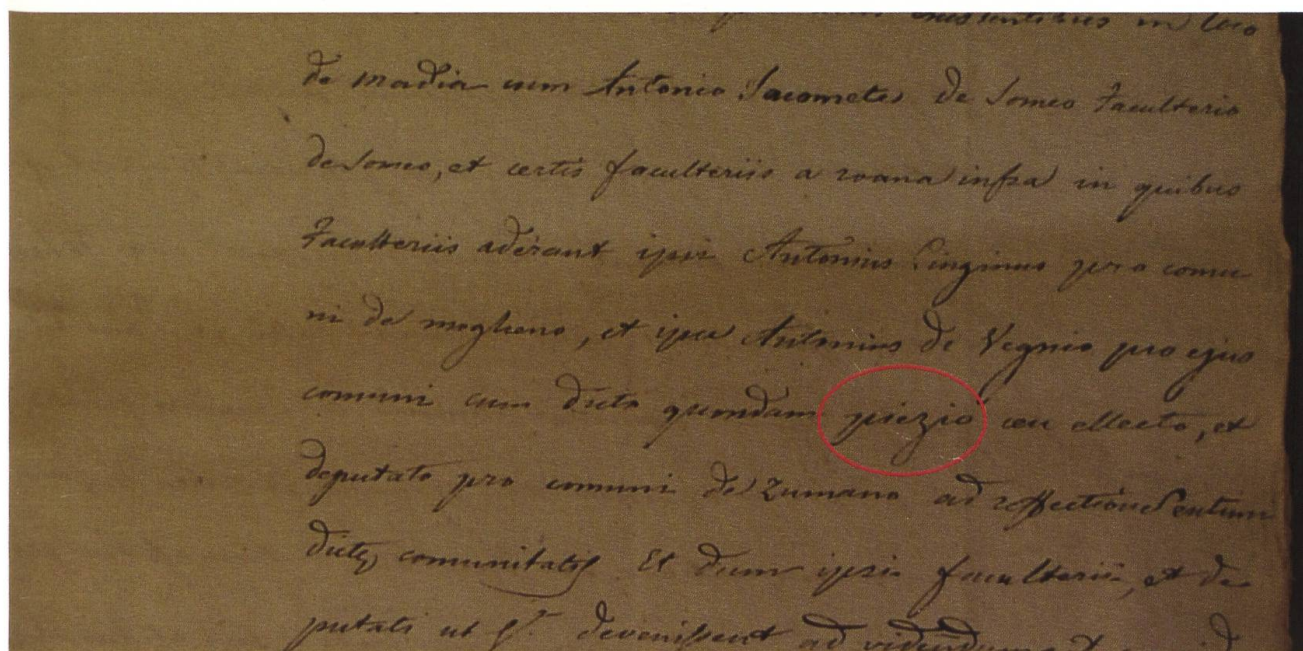 existentibus in loco
de madia cum Antonio Jacometes de Someo Faculterio
de Someo, et certis faculteriis a roana infra in quibus
Faculteriis aderant ipsi Antonius Pinginus pro comu
ni de mogheno, et ipse Antonius de Vegnio pro ejus
comuni cum dicto quondam piezio ceu electo, et
deputato pro comuni de Zumano ad
comunitatis Et dum ipsi faculterii, et de
putati ut devenissent ad videndum